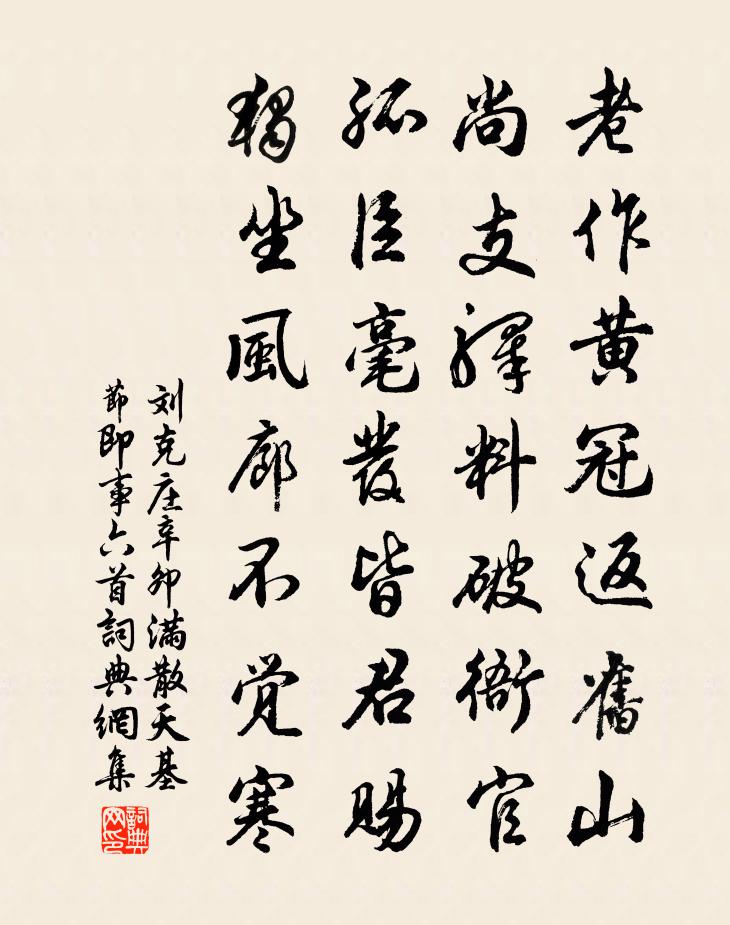 老作黄冠返舊山
尚支驛料破衙官
孤臣毫發皆君賜
獨坐風廊不覚寒
刘克庄辛卯满散天基
節即事六首詞典網集
詞典
网印